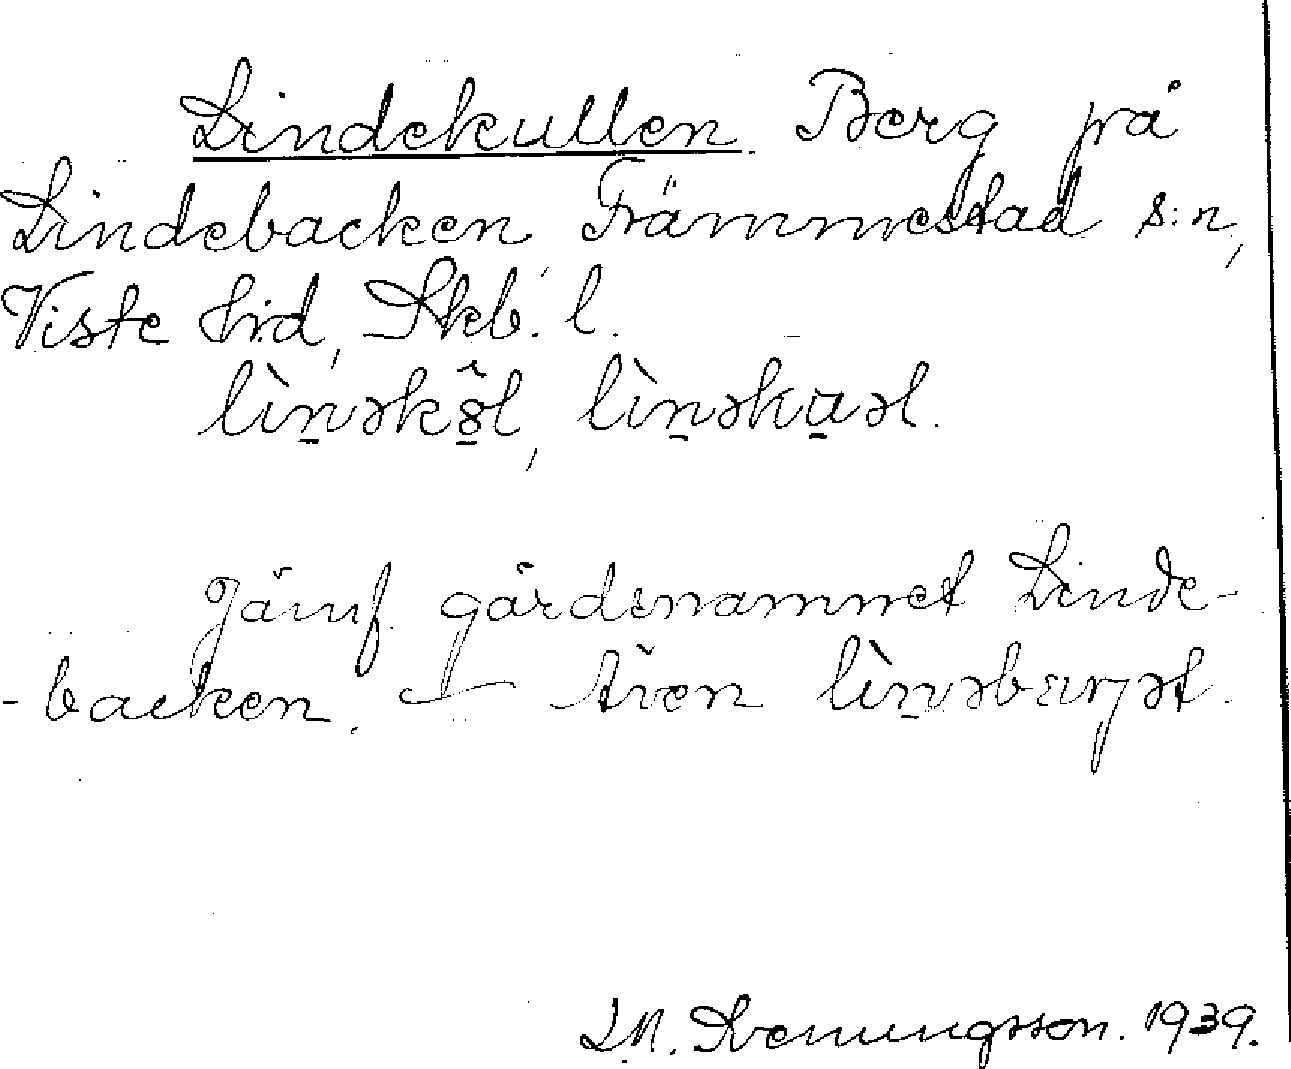 Lindekullen. Berg på
Lindebacken Främmestad s:n,
Viste hrd, Skb. l.
lìn̠əkô̠l, lìn̠əkuəl.
Jämf. gårdsnamnet Linde-
-backen. — Även lìn̠əbærjət.
1939.